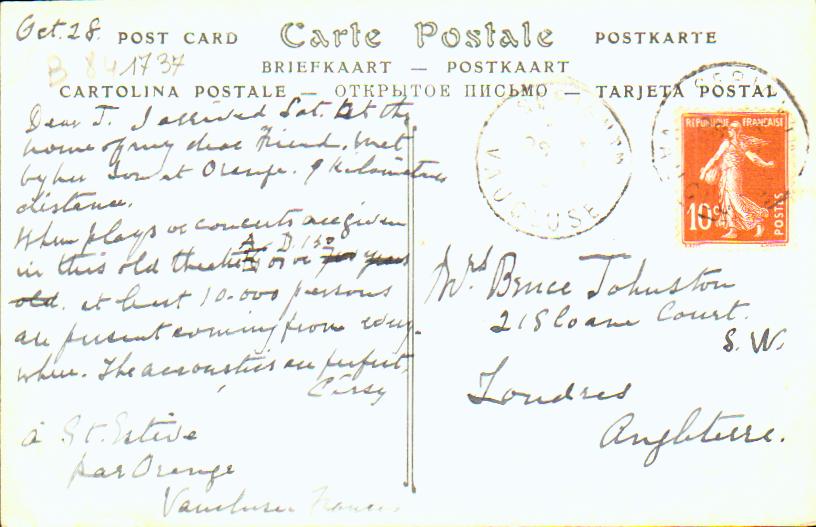 Oct. 28.
POST CARD Carte Postale POSTKARTE
B 841737
BRIEFKAART — POSTKAART
CARTOLINA POSTALE — ОТКРЫТОЕ ПИСЬМО — TARJETA POSTAL
Dear J. I arrived Sat. at the
home of my dear Friend. Met
by her Son at Orange. 9 Kilometres
distance.
When plays or concerts are given
in this old theatre A. D. 150 years
old. at least 10.000 persons
are present coming from every-
where. The acoustics are perfect,
Cirsy
à St. Estève
par Orange
Vaucluse France
VAUCLUSE
REPUBLIQUE FRANÇAISE
10 c
POSTES
Mrs Bruce Johnston
21 Sloane Court.
S. W.
Londres
Angleterre.